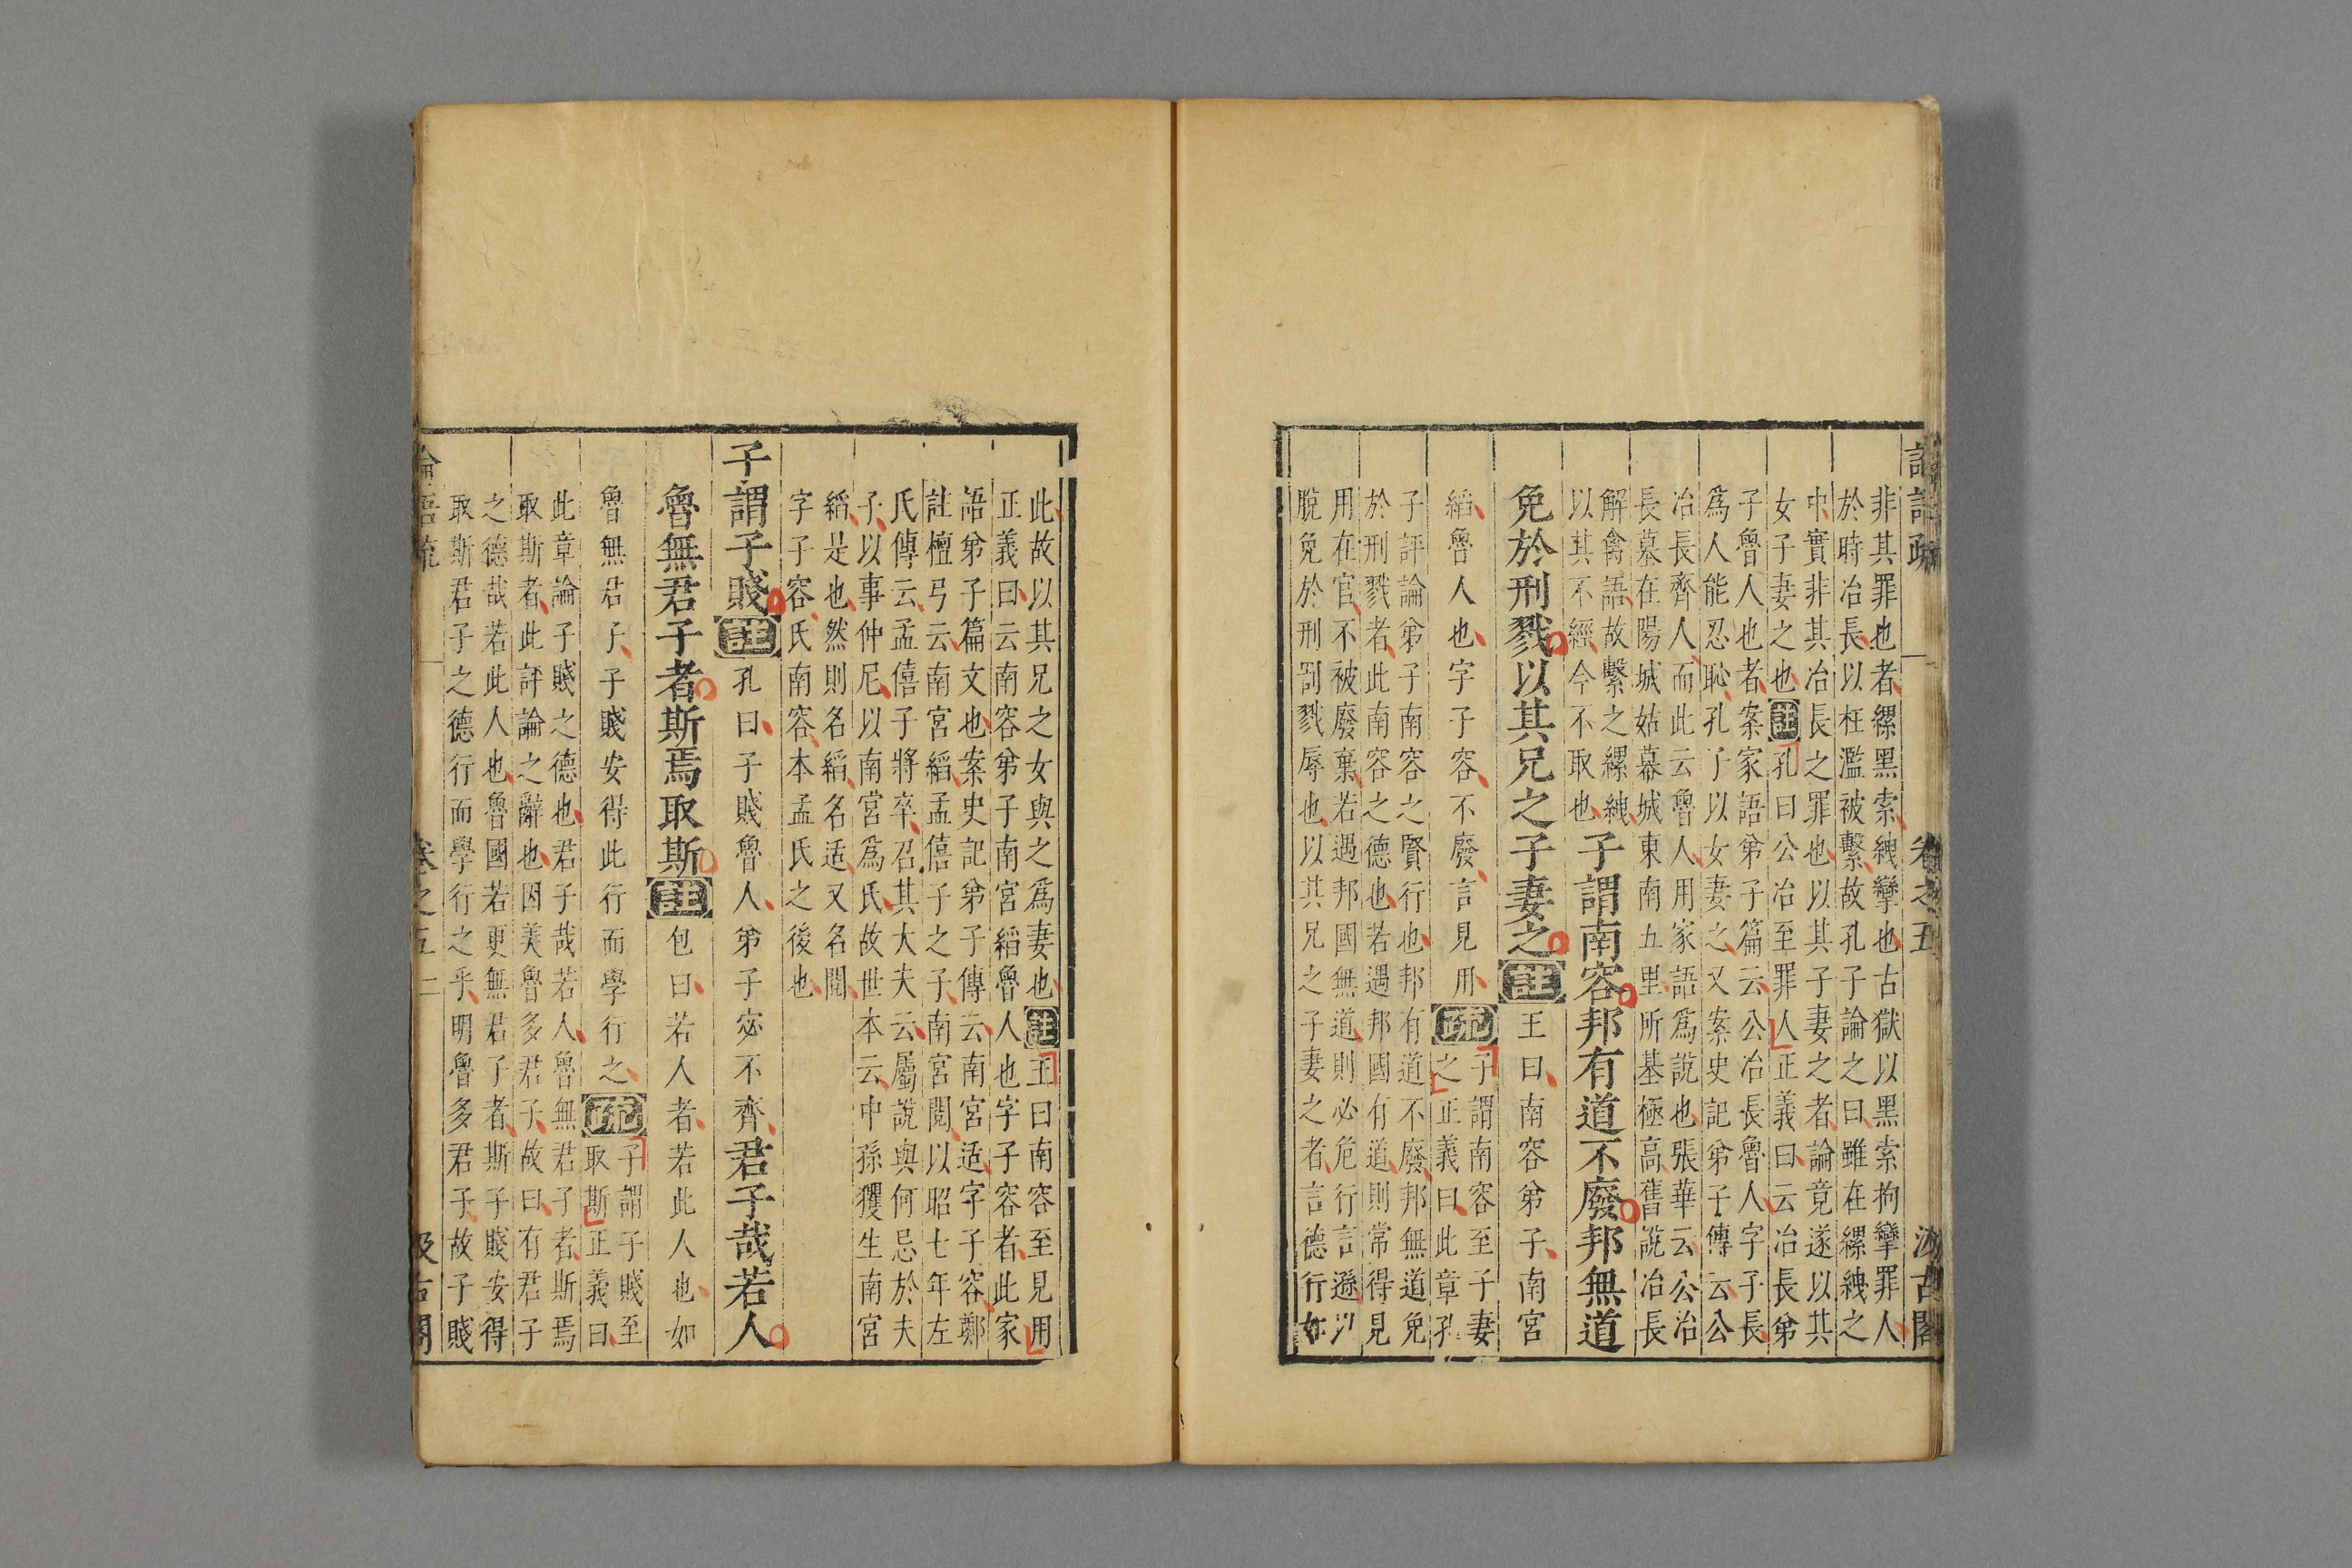 論語疏　卷之五　汲古閣
非其罪也者縲黑索紲攣也古獄以黑索拘攣罪人
於時冶長以枉濫被繫故孔子論之曰雖在縲紲之
中實非其冶長之罪也以其子妻之者論竟遂以其
女子妻之也註孔曰公冶至罪人正義曰云冶長弟
子魯人也者案家語弟子篇云公冶長魯人字子長
爲人能忍恥孔子以女妻之又案史記弟子傳云公
冶長齊人而此云魯人用家語爲說也張華云公冶
長墓在陽城姑幕城東南五里所基極高舊說冶長
解禽語故繫之縲紲
以其不經今不取也
子謂南容邦有道不廢邦無道
免於刑戮以其兄之子妻之註王曰南容弟子南宮
縚魯人也字子容不廢言見用疏
子謂南容至子妻
之正義曰此章孔
子評論弟子南容之賢行也邦有道不廢邦無道免
於刑戮者此南容之德也若遇邦國有道則常得見
用在官不被廢棄若遇邦國無道則必危行言遜以
脫免於刑罰戮辱也以其兄之子妻之者言德行如
此故以其兄之女與之爲妻也註王曰南容至見用
正義曰云南容弟子南宮縚魯人也字子容者此家
語弟子篇文也案史記弟子傳云南宮适字子容鄭
註檀弓云南宮縚孟僖子之子南宮閱以昭七年左
氏傳云孟僖子將卒召其大夫云屬說與何忌於夫
子以事仲尼以南宮爲氏故世本云中孫玃生南宮
縚是也然則名縚名适又名閱
字子容氏南容本孟氏之後也
子謂子賤註孔曰子賤魯人弟子宓不齊君子哉若人
魯無君子者斯焉取斯註包曰若人者若此人也如
魯無君子子賤安得此行而學行之疏
子謂子賤至
取斯正義曰
此章論子賤之德也君子哉若人魯無君子者斯焉
取斯者此評論之辭也因美魯多君子故曰有君子
之德哉若此人也魯國若更無君子者斯子賤安得
取斯君子之德行而學行之乎明魯多君子故子賤
論語疏　卷之五　二　汲古閣